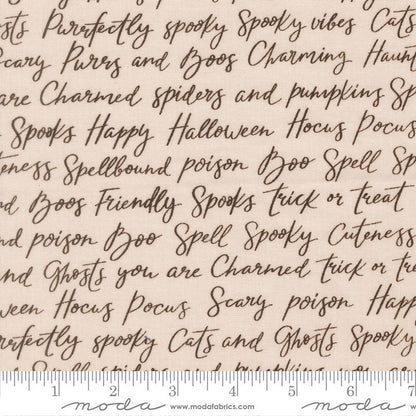 sts Purrfectly spooky Spooky vibes Cats
Scary Purrs and Boos Charming Haun
are Charmed spiders and pumpkins Sp
Spooks Happy Halloween Hocus Pocus
teness Spellbound poison Boo Spell Sp
nd Boos Friendly Spooks trick or treat
nd poison Boo Spell Spooky Cuteness
and Ghosts you are Charmed trick or tre
ween Hocus Pocus Scary poison Happ
rrfectly spooky Cats and Ghosts Spooky
1 2 3 4 5 6 7
moda www.modafabrics.com moda